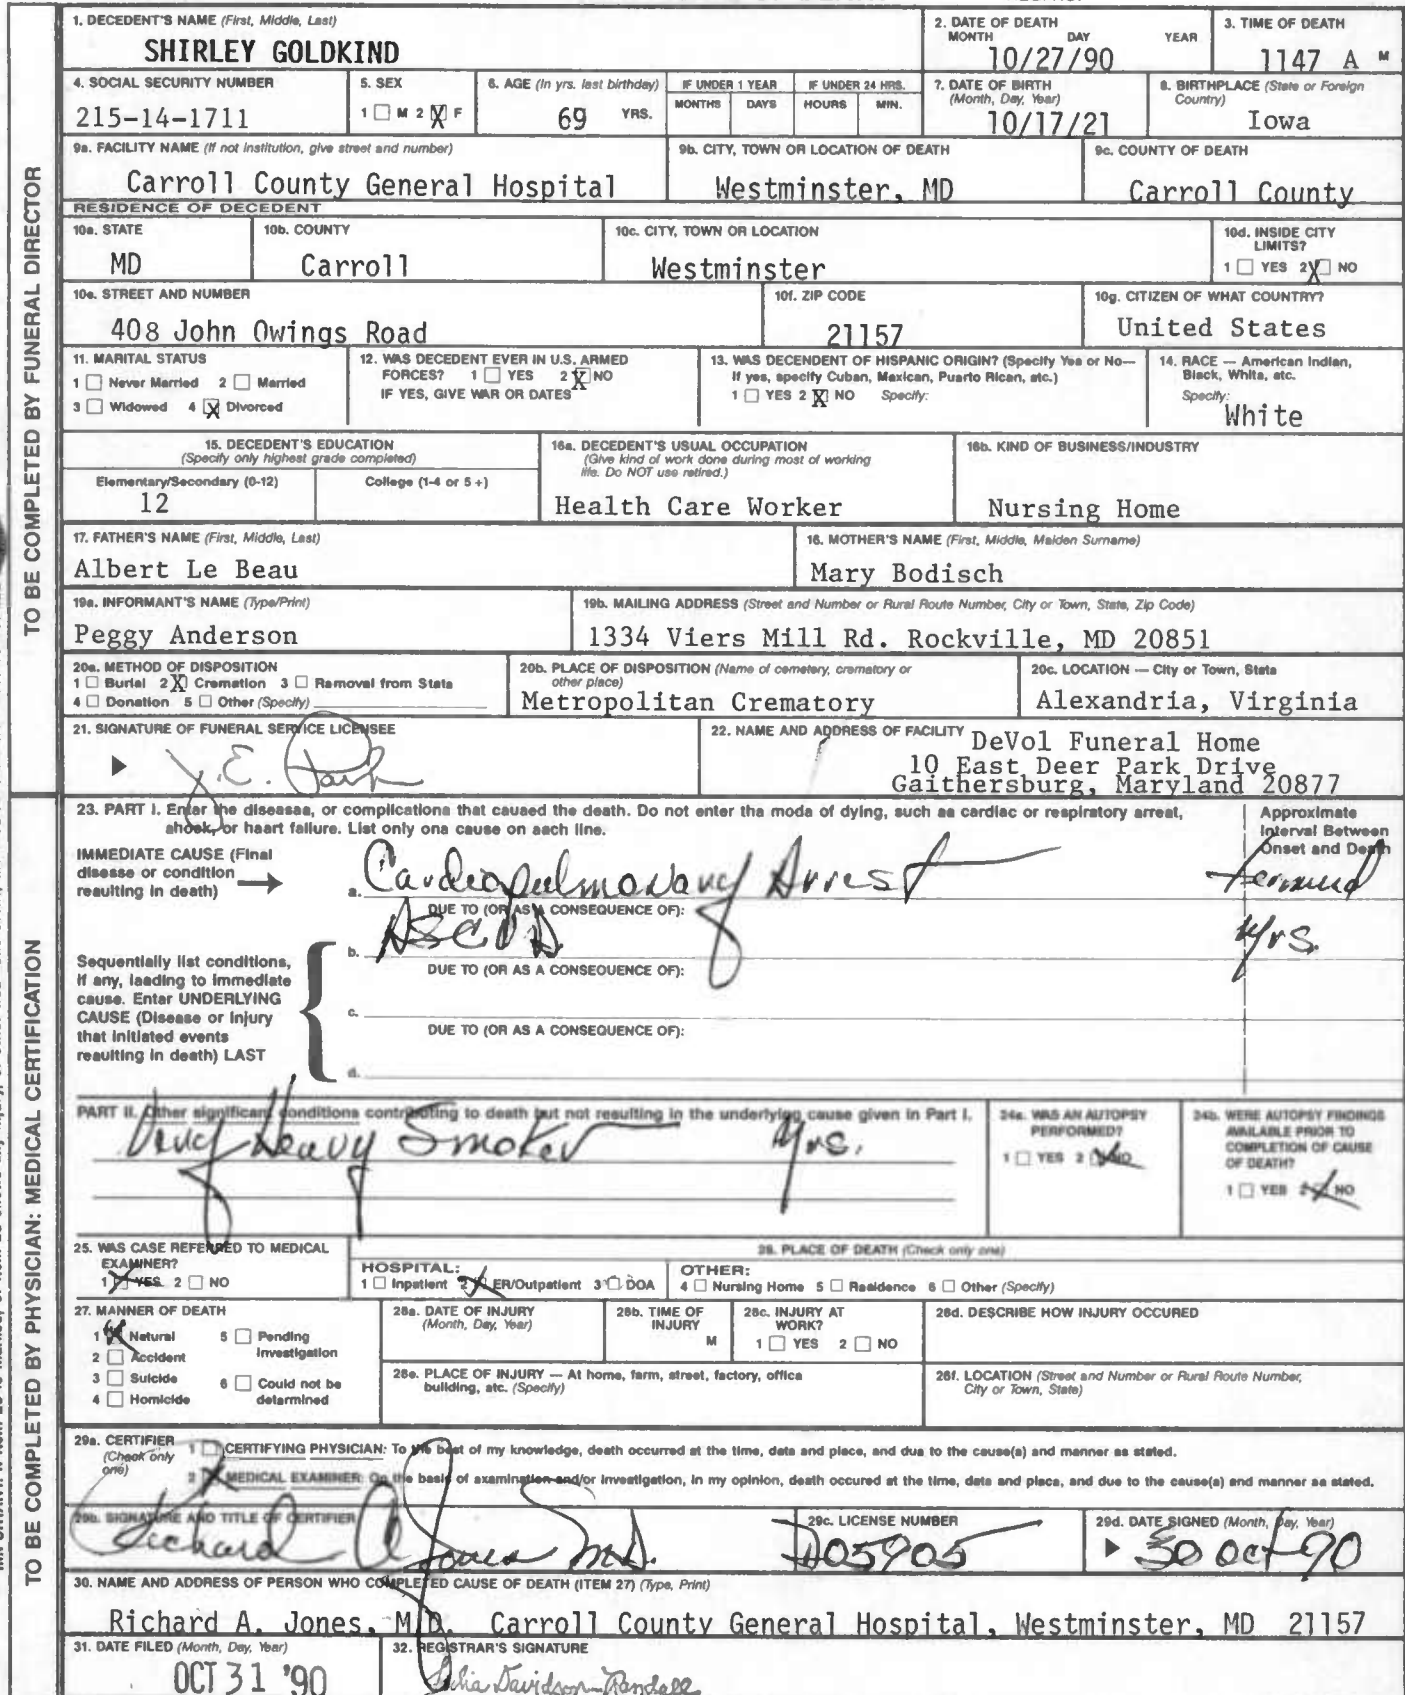 1. DECEDENT'S NAME (First, Middle, Last)
SHIRLEY GOLDKIND
2. DATE OF DEATH
MONTH DAY YEAR
10/27/90
3. TIME OF DEATH
1147 A M
4. SOCIAL SECURITY NUMBER
215-14-1711
5. SEX
1 ☐ M 2 ☒ F
6. AGE (In yrs. last birthday)
69 YRS.
IF UNDER 1 YEAR
MONTHS DAYS
IF UNDER 24 HRS.
HOURS MIN.
7. DATE OF BIRTH
(Month, Day, Year)
10/17/21
8. BIRTHPLACE (State or Foreign
Country)
Iowa
9a. FACILITY NAME (If not institution, give street and number)
Carroll County General Hospital
9b. CITY, TOWN OR LOCATION OF DEATH
Westminster, MD
9c. COUNTY OF DEATH
Carroll County
RESIDENCE OF DECEDENT
10a. STATE
MD
10b. COUNTY
Carroll
10c. CITY, TOWN OR LOCATION
Westminster
10d. INSIDE CITY
LIMITS?
1 ☐ YES 2 ☒ NO
10e. STREET AND NUMBER
408 John Owings Road
10f. ZIP CODE
21157
10g. CITIZEN OF WHAT COUNTRY?
United States
11. MARITAL STATUS
1 ☐ Never Married 2 ☐ Married
3 ☐ Widowed 4 ☒ Divorced
12. WAS DECEDENT EVER IN U.S. ARMED
FORCES? 1 ☐ YES 2 ☒ NO
IF YES, GIVE WAR OR DATES
13. WAS DECENDENT OF HISPANIC ORIGIN? (Specify Yes or No—
If yes, specify Cuban, Mexican, Puerto Rican, etc.)
1 ☐ YES 2 ☒ NO Specify:
14. RACE — American Indian,
Black, White, etc.
Specify:
White
15. DECEDENT'S EDUCATION
(Specify only highest grade completed)
Elementary/Secondary (0-12) College (1-4 or 5+)
12
16a. DECEDENT'S USUAL OCCUPATION
(Give kind of work done during most of working
life. Do NOT use retired.)
Health Care Worker
16b. KIND OF BUSINESS/INDUSTRY
Nursing Home
17. FATHER'S NAME (First, Middle, Last)
Albert Le Beau
18. MOTHER'S NAME (First, Middle, Maiden Surname)
Mary Bodisch
19a. INFORMANT'S NAME (Type/Print)
Peggy Anderson
19b. MAILING ADDRESS (Street and Number or Rural Route Number, City or Town, State, Zip Code)
1334 Viers Mill Rd. Rockville, MD 20851
20a. METHOD OF DISPOSITION
1 ☐ Burial 2 ☒ Cremation 3 ☐ Removal from State
4 ☐ Donation 5 ☐ Other (Specify)
20b. PLACE OF DISPOSITION (Name of cemetery, crematory or
other place)
Metropolitan Crematory
20c. LOCATION — City or Town, State
Alexandria, Virginia
21. SIGNATURE OF FUNERAL SERVICE LICENSEE
J. E.
22. NAME AND ADDRESS OF FACILITY
DeVol Funeral Home
10 East Deer Park Drive
Gaithersburg, Maryland 20877
TO BE COMPLETED BY FUNERAL DIRECTOR
23. PART I. Enter the diseases, or complications that caused the death. Do not enter the mode of dying, such as cardiac or respiratory arrest,
shock, or heart failure. List only one cause on each line.
Approximate
Interval Between
Onset and Death
IMMEDIATE CAUSE (Final
disease or condition
resulting in death)
a. Cardiopulmonary Arrest
DUE TO (OR AS A CONSEQUENCE OF):
b. ASCVD yrs.
DUE TO (OR AS A CONSEQUENCE OF):
c.
DUE TO (OR AS A CONSEQUENCE OF):
d.
Sequentially list conditions,
if any, leading to immediate
cause. Enter UNDERLYING
CAUSE (Disease or injury
that initiated events
resulting in death) LAST
PART II. Other significant conditions contributing to death but not resulting in the underlying cause given in Part I.
Very Heavy Smoker yrs.
24a. WAS AN AUTOPSY
PERFORMED?
1 ☐ YES 2 ☒ NO
24b. WERE AUTOPSY FINDINGS
AVAILABLE PRIOR TO
COMPLETION OF CAUSE
OF DEATH?
1 ☐ YES 2 ☒ NO
25. WAS CASE REFERRED TO MEDICAL
EXAMINER?
1 ☒ YES 2 ☐ NO
26. PLACE OF DEATH (Check only one)
HOSPITAL:
1 ☐ Inpatient 2 ☒ ER/Outpatient 3 ☐ DOA
OTHER:
4 ☐ Nursing Home 5 ☐ Residence 6 ☐ Other (Specify)
27. MANNER OF DEATH
1 ☒ Natural 5 ☐ Pending
Investigation
2 ☐ Accident
3 ☐ Suicide 6 ☐ Could not be
4 ☐ Homicide determined
28a. DATE OF INJURY
(Month, Day, Year)
28b. TIME OF
INJURY
M
28c. INJURY AT
WORK?
1 ☐ YES 2 ☐ NO
28d. DESCRIBE HOW INJURY OCCURED
28e. PLACE OF INJURY — At home, farm, street, factory, office
building, etc. (Specify)
28f. LOCATION (Street and Number or Rural Route Number,
City or Town, State)
29a. CERTIFIER
(Check only
one)
1 ☐ CERTIFYING PHYSICIAN: To the best of my knowledge, death occurred at the time, date and place, and due to the cause(s) and manner as stated.
2 ☒ MEDICAL EXAMINER: On the basis of examination and/or investigation, in my opinion, death occured at the time, date and place, and due to the cause(s) and manner as stated.
29b. SIGNATURE AND TITLE OF CERTIFIER
Richard A Jones M.D.
29c. LICENSE NUMBER
D05905
29d. DATE SIGNED (Month, Day, Year)
30 Oct 90
30. NAME AND ADDRESS OF PERSON WHO COMPLETED CAUSE OF DEATH (ITEM 27) (Type, Print)
Richard A. Jones, M.D. Carroll County General Hospital, Westminster, MD 21157
31. DATE FILED (Month, Day, Year)
OCT 31 '90
32. REGISTRAR'S SIGNATURE
Julia Davidson-Randall
TO BE COMPLETED BY PHYSICIAN: MEDICAL CERTIFICATION